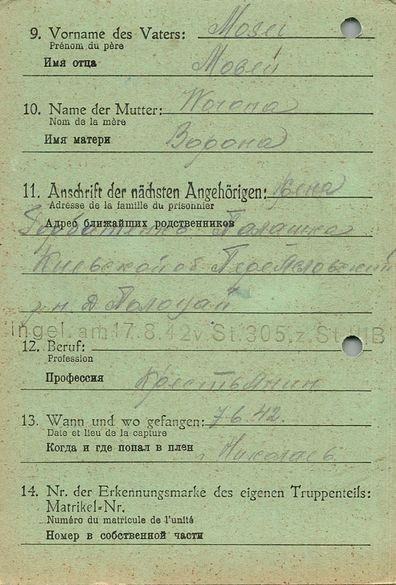 9. Vorname des Vaters: Мовеі
Prénom du père
Имя отца Мовей
10. Name der Mutter: Worona
Nom de la mère
Имя матери Ворона
11. Anschrift der nächsten Angehörigen: жена
Adresse de la famille du prisonnier
Адрес ближайших родственников
Палашка
Киевской об
р-н д
ingel. am 17.8.42 v. St. 305, z. St.
12. Beruf:
Profession
Профессия Крестьянин
13. Wann und wo gefangen: 7.6.42.
Date et lieu de la capture
Когда и где попал в плен г. Николаев
14. Nr. der Erkennungsmarke des eigenen Truppenteils:
Matrikel-Nr.
Numéro du matricule de l'unité
Номер в собственной части